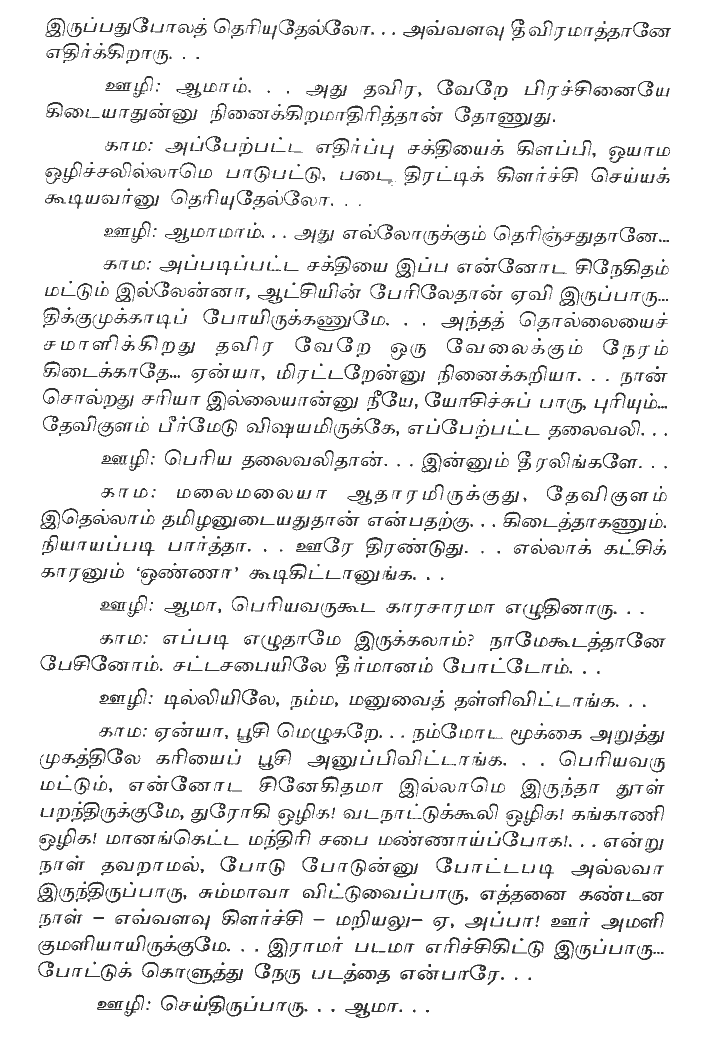 இருப்பதுபோலத் தெரியுதேல்லோ. . . அவ்வளவு தீவிரமாத்தானே
எதிர்க்கிறாரு. . .
ஊழி: ஆமாம். . . அது தவிர, வேறே பிரச்சினையே
கிடையாதுன்னு நினைக்கிறமாதிரித்தான் தோணுது.
காம: அப்பேற்பட்ட எதிர்ப்பு சக்தியைக் கிளப்பி, ஒயாம
ஒழிச்சலில்லாமெ பாடுபட்டு, படை திரட்டிக் கிளர்ச்சி செய்யக்
கூடியவர்னு தெரியுதேல்லோ. . .
ஊழி: ஆமாமாம். . . அது எல்லோருக்கும் தெரிஞ்சதுதானே...
காம: அப்படிப்பட்ட சக்தியை இப்ப என்னோட சிநேகிதம்
மட்டும் இல்லேன்னா, ஆட்சியின் பேரிலேதான் ஏவி இருப்பாரு...
திக்குமுக்காடிப் போயிருக்கணுமே. . . அந்தத் தொல்லையைச்
சமாளிக்கிறது தவிர வேறே ஒரு வேலைக்கும் நேரம்
கிடைக்காதே... ஏன்யா, மிரட்டறேன்னு நினைக்கறியா. . . நான்
சொல்றது சரியா இல்லையான்னு நீயே, யோசிச்சுப் பாரு, புரியும்...
தேவிகுளம் பீர்மேடு விஷயமிருக்கே, எப்பேற்பட்ட தலைவலி. . .
ஊழி: பெரிய தலைவலிதான். . . இன்னும் தீரலிங்களே. . .
காம: மலைமலையா ஆதாரமிருக்குது, தேவிகுளம்
இதெல்லாம் தமிழனுடையதுதான் என்பதற்கு. . . கிடைத்தாகணும்.
நியாயப்படி பார்த்தா. . . ஊரே திரண்டுது. . . எல்லாக் கட்சிக்
காரனும் ‘ஒண்ணா’ கூடிகிட்டானுங்க. . .
ஊழி: ஆமா, பெரியவருகூட காரசாரமா எழுதினாரு. . .
காம: எப்படி எழுதாமே இருக்கலாம்? நாமேகூடத்தானே
பேசினோம். சட்டசபையிலே தீர்மானம் போட்டோம். . .
ஊழி: டில்லியிலே, நம்ம, மனுவைத் தள்ளிவிட்டாங்க. . .
காம: ஏன்யா, பூசி மெழுகறே. . . நம்மோட மூக்கை அறுத்து
முகத்திலே கரியைப் பூசி அனுப்பிவிட்டாங்க. . . பெரியவரு
மட்டும், என்னோட சினேகிதமா இல்லாமெ இருந்தா தூள்
பறந்திருக்குமே, துரோகி ஒழிக! வடநாட்டுக்கூலி ஒழிக! கங்காணி
ஒழிக! மானங்கெட்ட மந்திரி சபை மண்ணாய்ப்போக!. . . என்று
நாள் தவறாமல், போடு போடுன்னு போட்டபடி அல்லவா
இருந்திருப்பாரு, சும்மாவா விட்டுவைப்பாரு, எத்தனை கண்டன
நாள் – எவ்வளவு கிளர்ச்சி – மறியலு– ஏ, அப்பா! ஊர் அமளி
குமளியாயிருக்குமே. . . இராமர் படமா எரிச்சிகிட்டு இருப்பாரு...
போட்டுக் கொளுத்து நேரு படத்தை என்பாரே. . .
ஊழி: செய்திருப்பாரு. . . ஆமா. . .